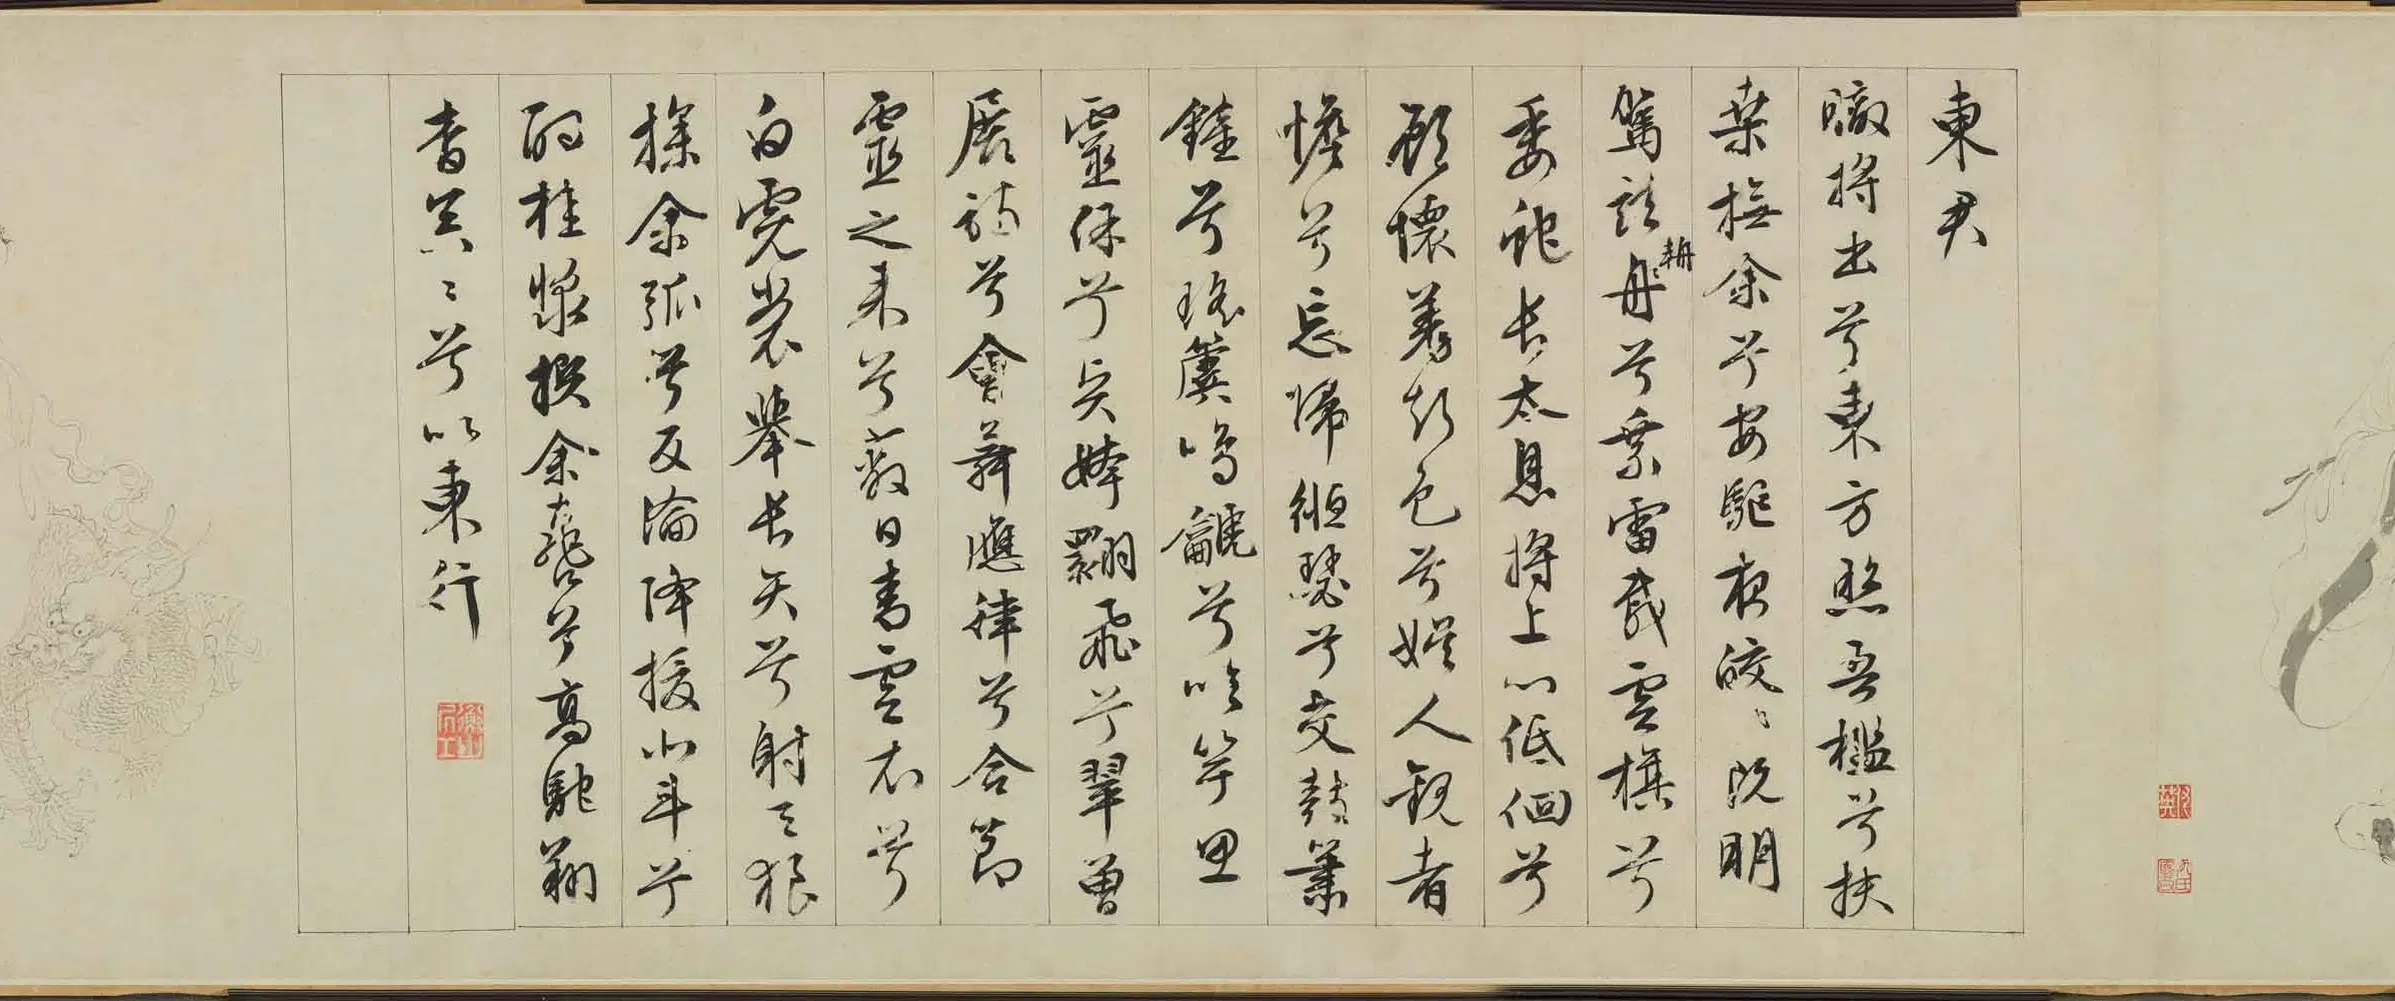 東君
暾將出兮東方照吾檻兮扶
桒撫余兮安驅夜皎〻既明
駕龍舟輈兮乗雷載雲旗兮
委蛇長太息將上心低佪兮
顧懷羌聲色兮娛人觀者
憺兮忘歸緪瑟兮交鼓簫
鐘兮瑤簴鳴䶵兮吹竽思
靈保兮賢姱翾飛兮翠曾
展詩兮會舞應律兮合節
靈之來兮蔽日青雲衣兮
白霓裳舉長矢兮射天狼
操余弧兮反淪降援北斗兮
酌桂漿撰余轡兮高駝翔
杳冥〻兮以東行